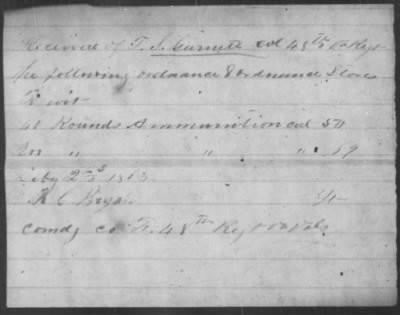 Received of T. S. Garnett Col 48th Va Regt
the following ordnance & ordnance Stores
To wit
40 Rounds Ammunition cal 54
200 " " " 69
Feby 2nd 1863
R C Bryan
Comdg co F. 48th Regt Va Vols